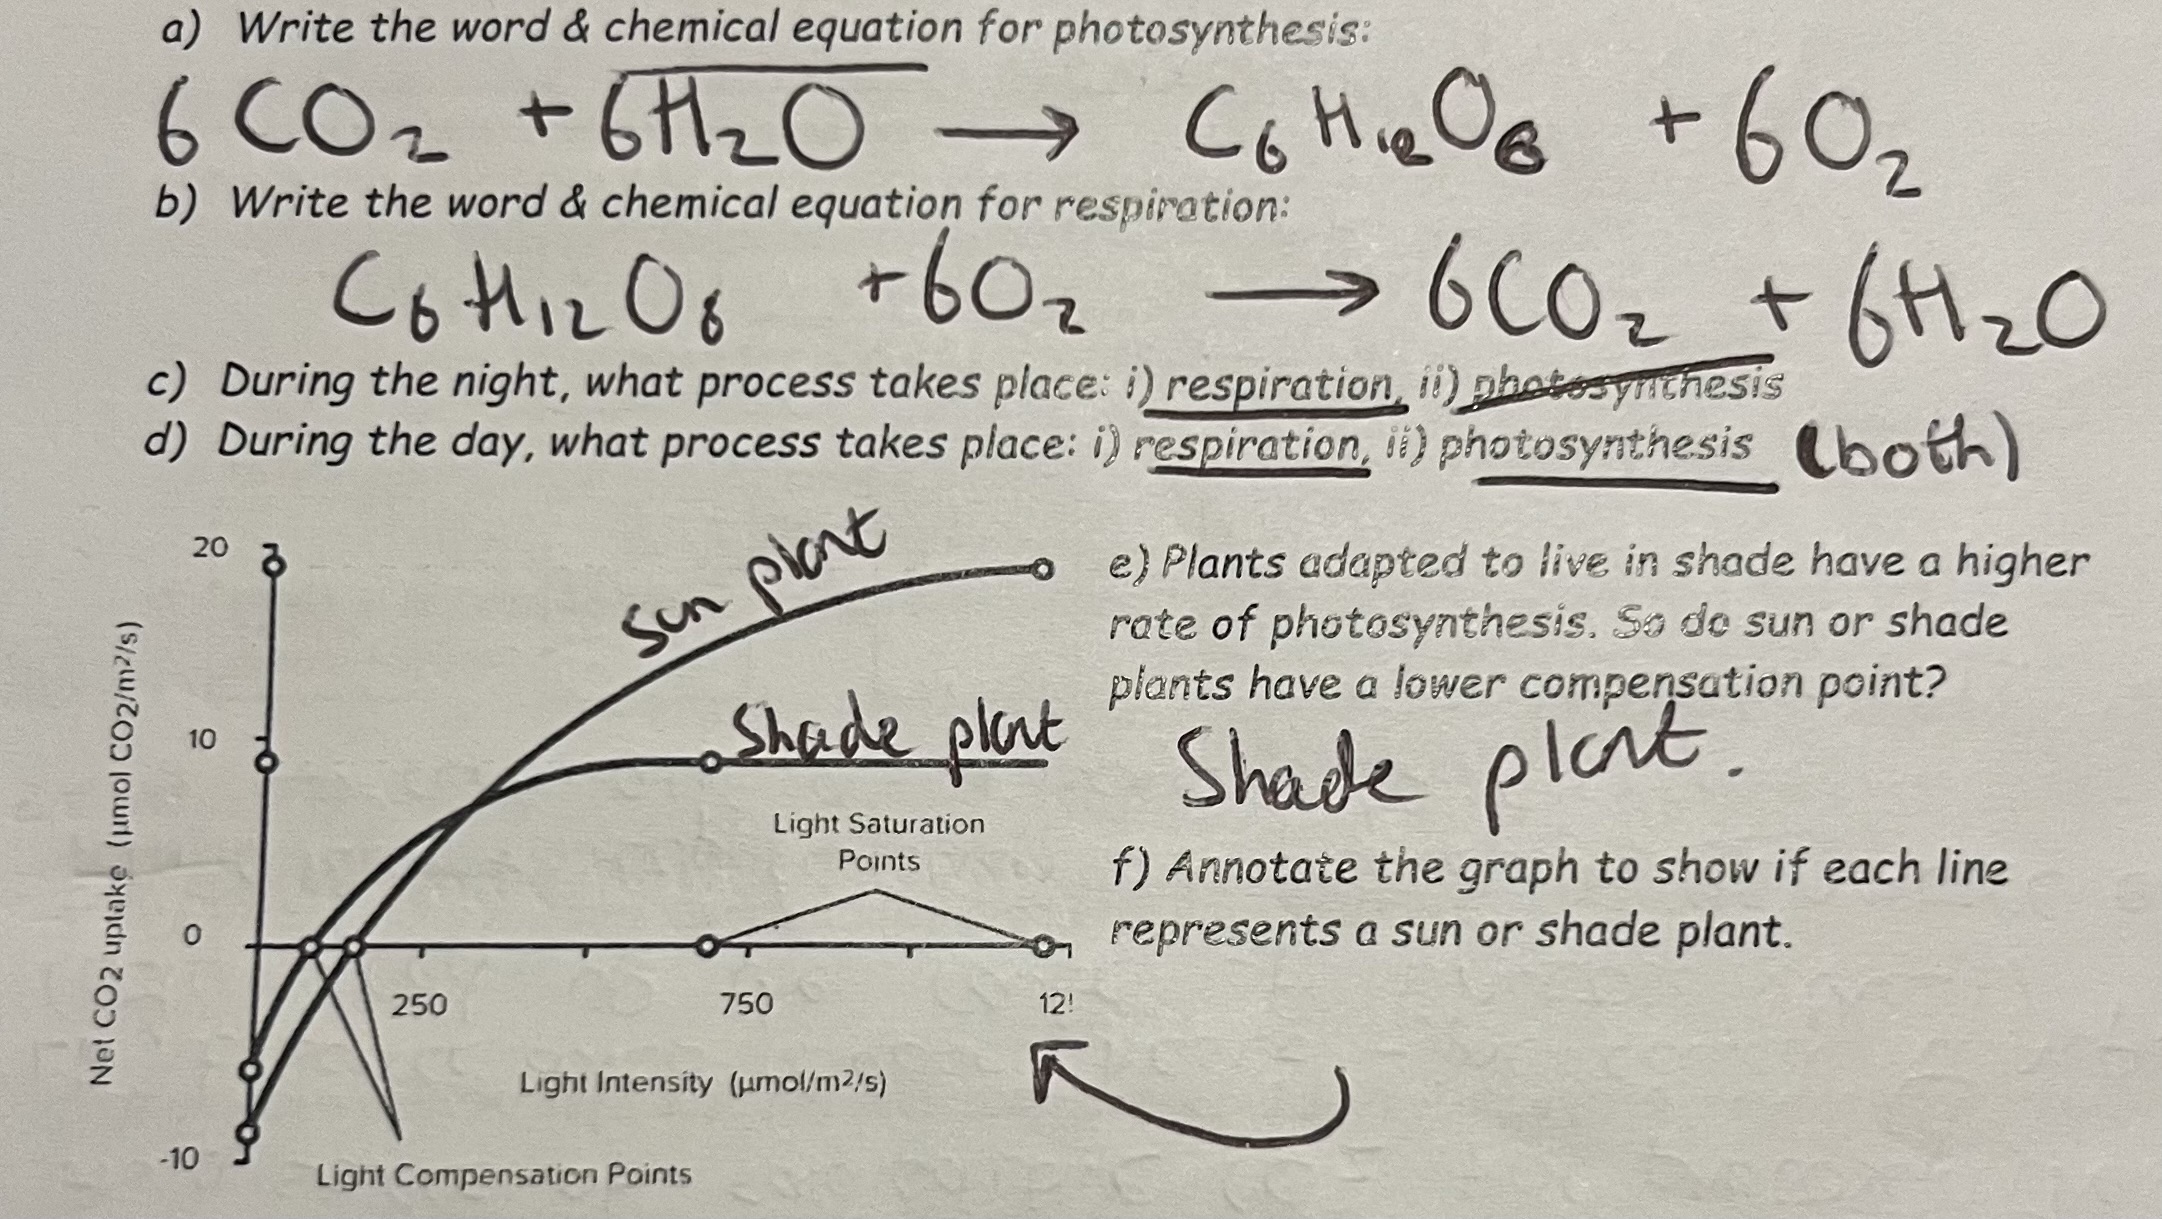 a) Write the word & chemical equation for photosynthesis:
6 CO2 + 6H2O → C6H12O6 + 6O2
b) Write the word & chemical equation for respiration:
C6H12O6 + 6O2 → 6CO2 + 6H2O
c) During the night, what process takes place: i) respiration, ii) photosynthesis
d) During the day, what process takes place: i) respiration, ii) photosynthesis (both)
20
10
0
-10
Net CO2 uptake (µmol CO2/m²/s)
Sun plant
Shade plant
Light Saturation
Points
250 750 12
Light Intensity (µmol/m2/s)
Light Compensation Points
e) Plants adapted to live in shade have a higher
rate of photosynthesis. So do sun or shade
plants have a lower compensation point?
Shade plant.
f) Annotate the graph to show if each line
represents a sun or shade plant.